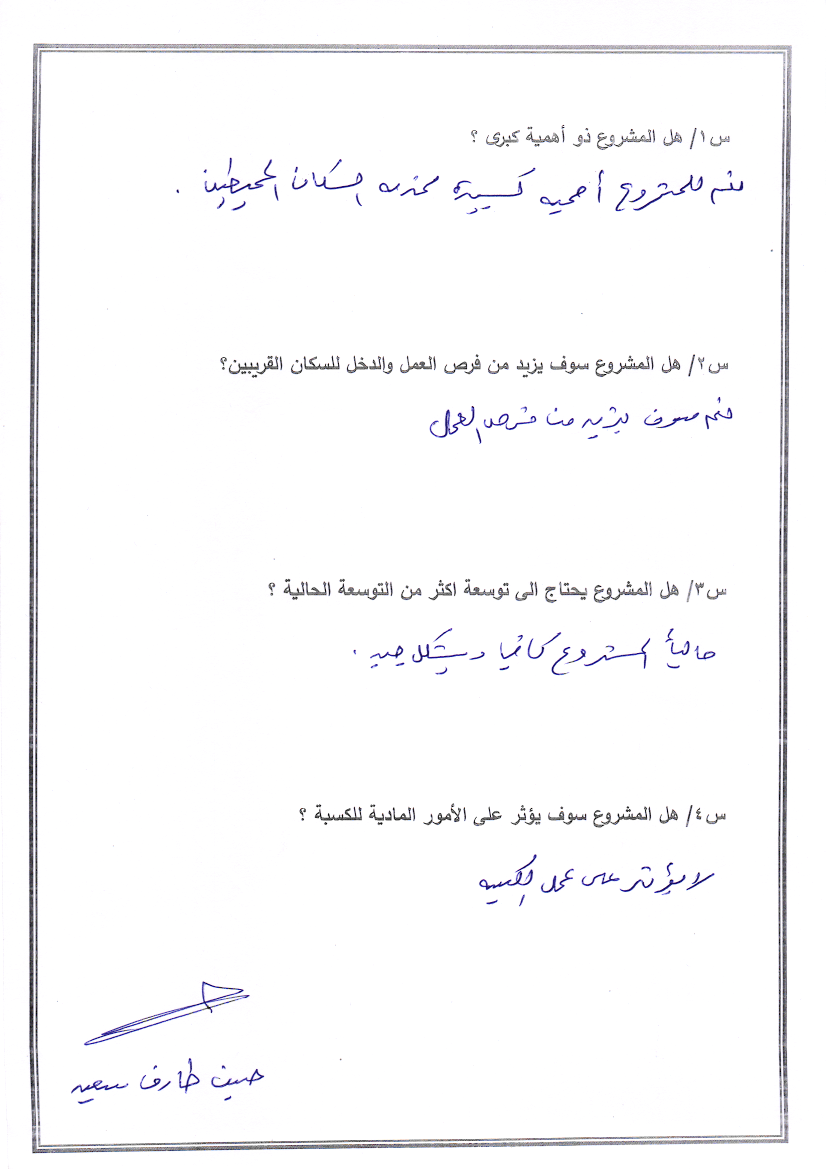 س١/ هل المشروع ذو أهمية كبرى ؟
نعم للمشروع أهميه كبيرة لخدمه السكان المحيطين .
س٢/ هل المشروع سوف يزيد من فرص العمل والدخل للسكان القريبين؟
نعم سوف يزيد من فرص العمل
س٣/ هل المشروع يحتاج الى توسعة اكثر من التوسعة الحالية ؟
حالياً المشروع كافيا وبشكل جيد .
س٤/ هل المشروع سوف يؤثر على الأمور المادية للكسبة ؟
لا يؤثر على عمل الكسبه
طارق سعيد